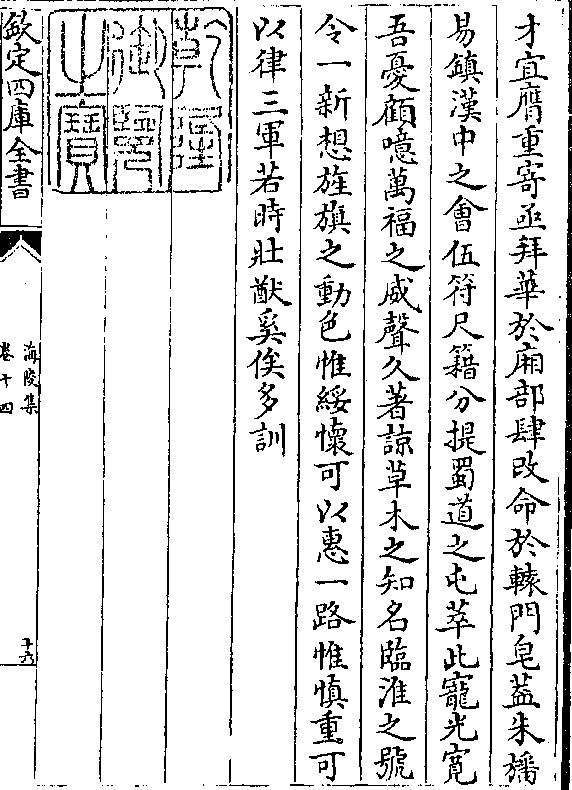 才宜膺重寄亟拜華於廂部肆改命於轅門皂蓋朱轓
易鎮漢中之會伍符尺籍分提蜀道之屯萃此寵光寛
吾憂顧噫萬福之威聲久著諒草木之知名臨淮之號
令一新想旌旗之動色惟綏懷可以惠一路惟慎重可
以律三軍若時壯猷奚俟多訓
乾隆
御覽
之寶
欽定四庫全書
海陵集
卷十四
十六